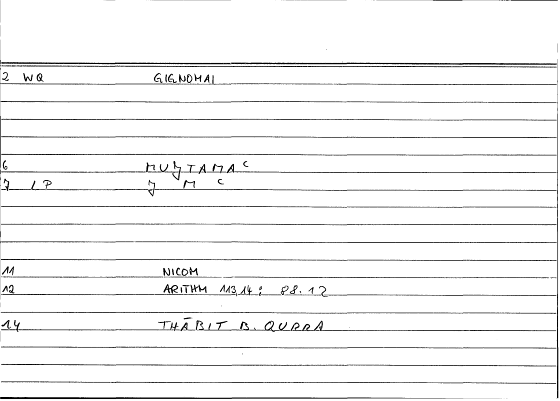 2 WQ GIGNOMAI
6 MUǦTAMAʿ
7 IP Ǧ M ʿ
11 NICOM
12 ARITHM 113,14; 88.12
14 THĀBIT B. QURRA